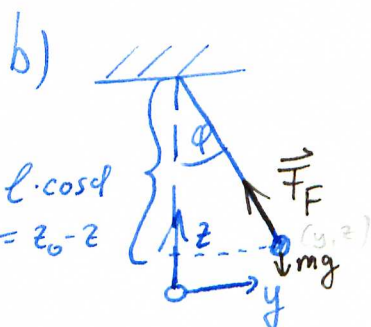 b)
φ
ℓ·cosd
= z₀-z
z
F_F
(y, z)
mg
y